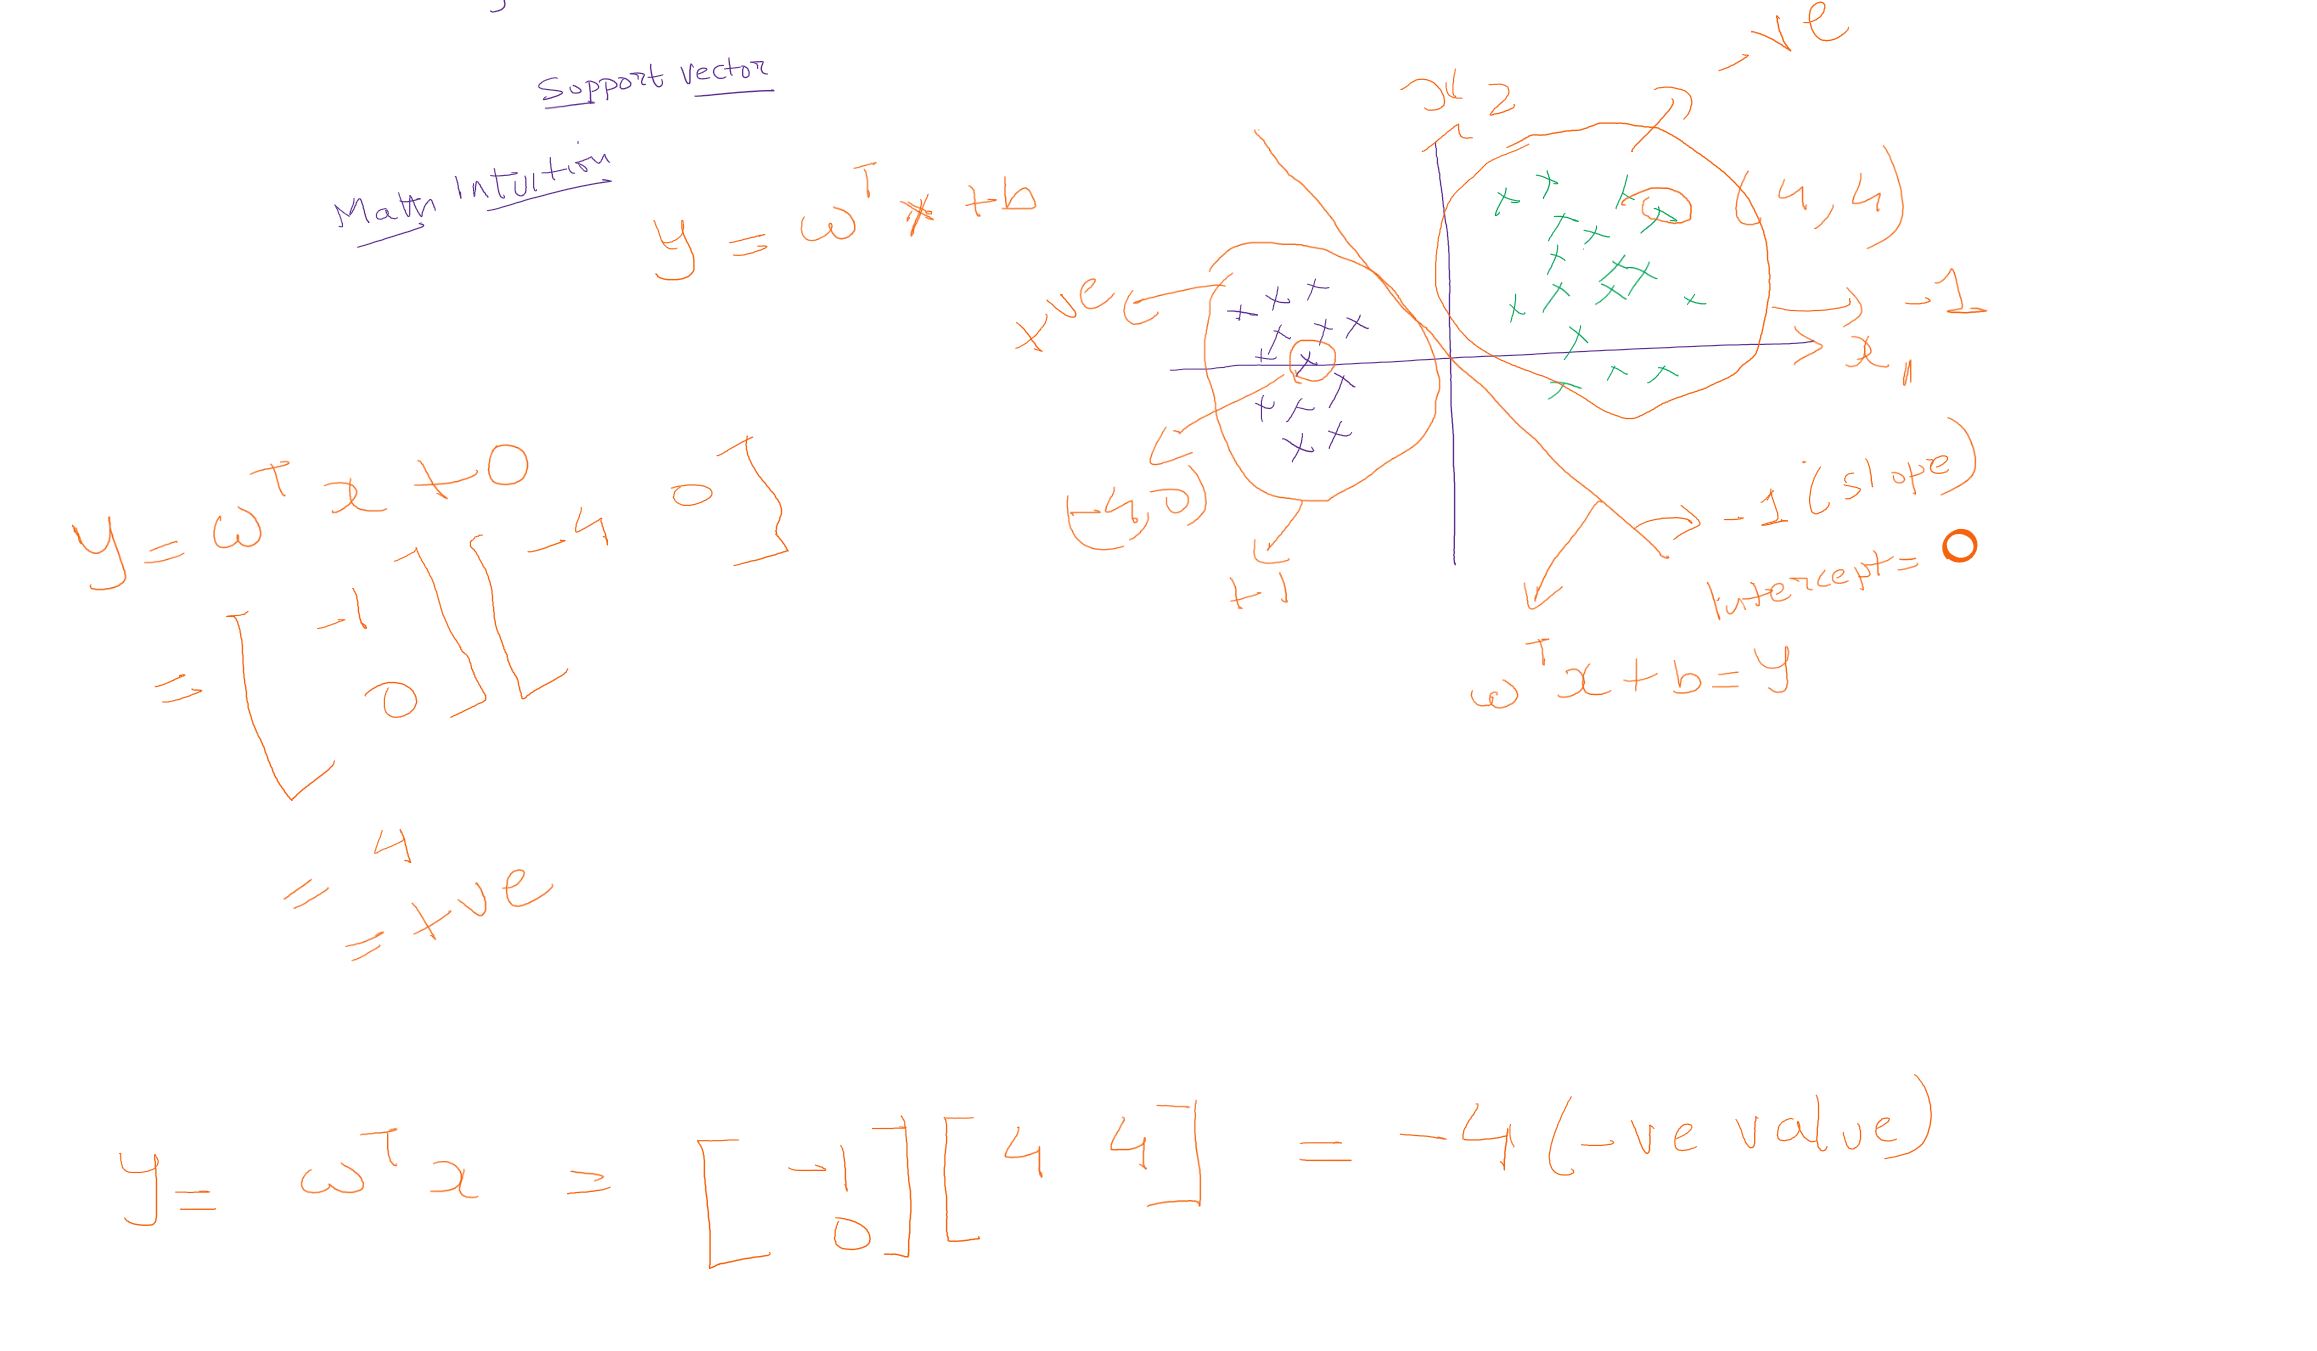 Support vector
Math Intuition
y = ω^T x + b
x2
-ve
(4, 4)
+ve
-1
x1
(-4, 0)
+1
-1 (slope)
Intercept = 0
ω^T x + b = y
y = ω^T x + 0
= [-1 0] [-4 0]
= 4
= +ve
y = ω^T x = [-1 0] [4 4] = -4 (-ve value)